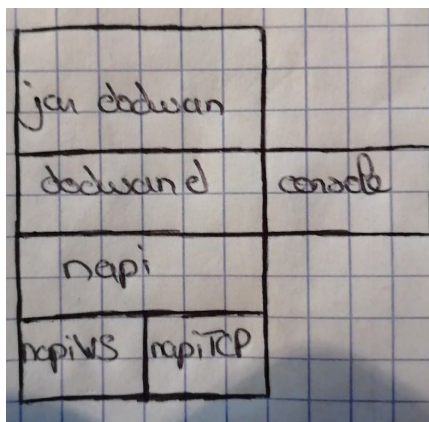 jar dodwan
dodwand console
napi
napiWS napiTCP